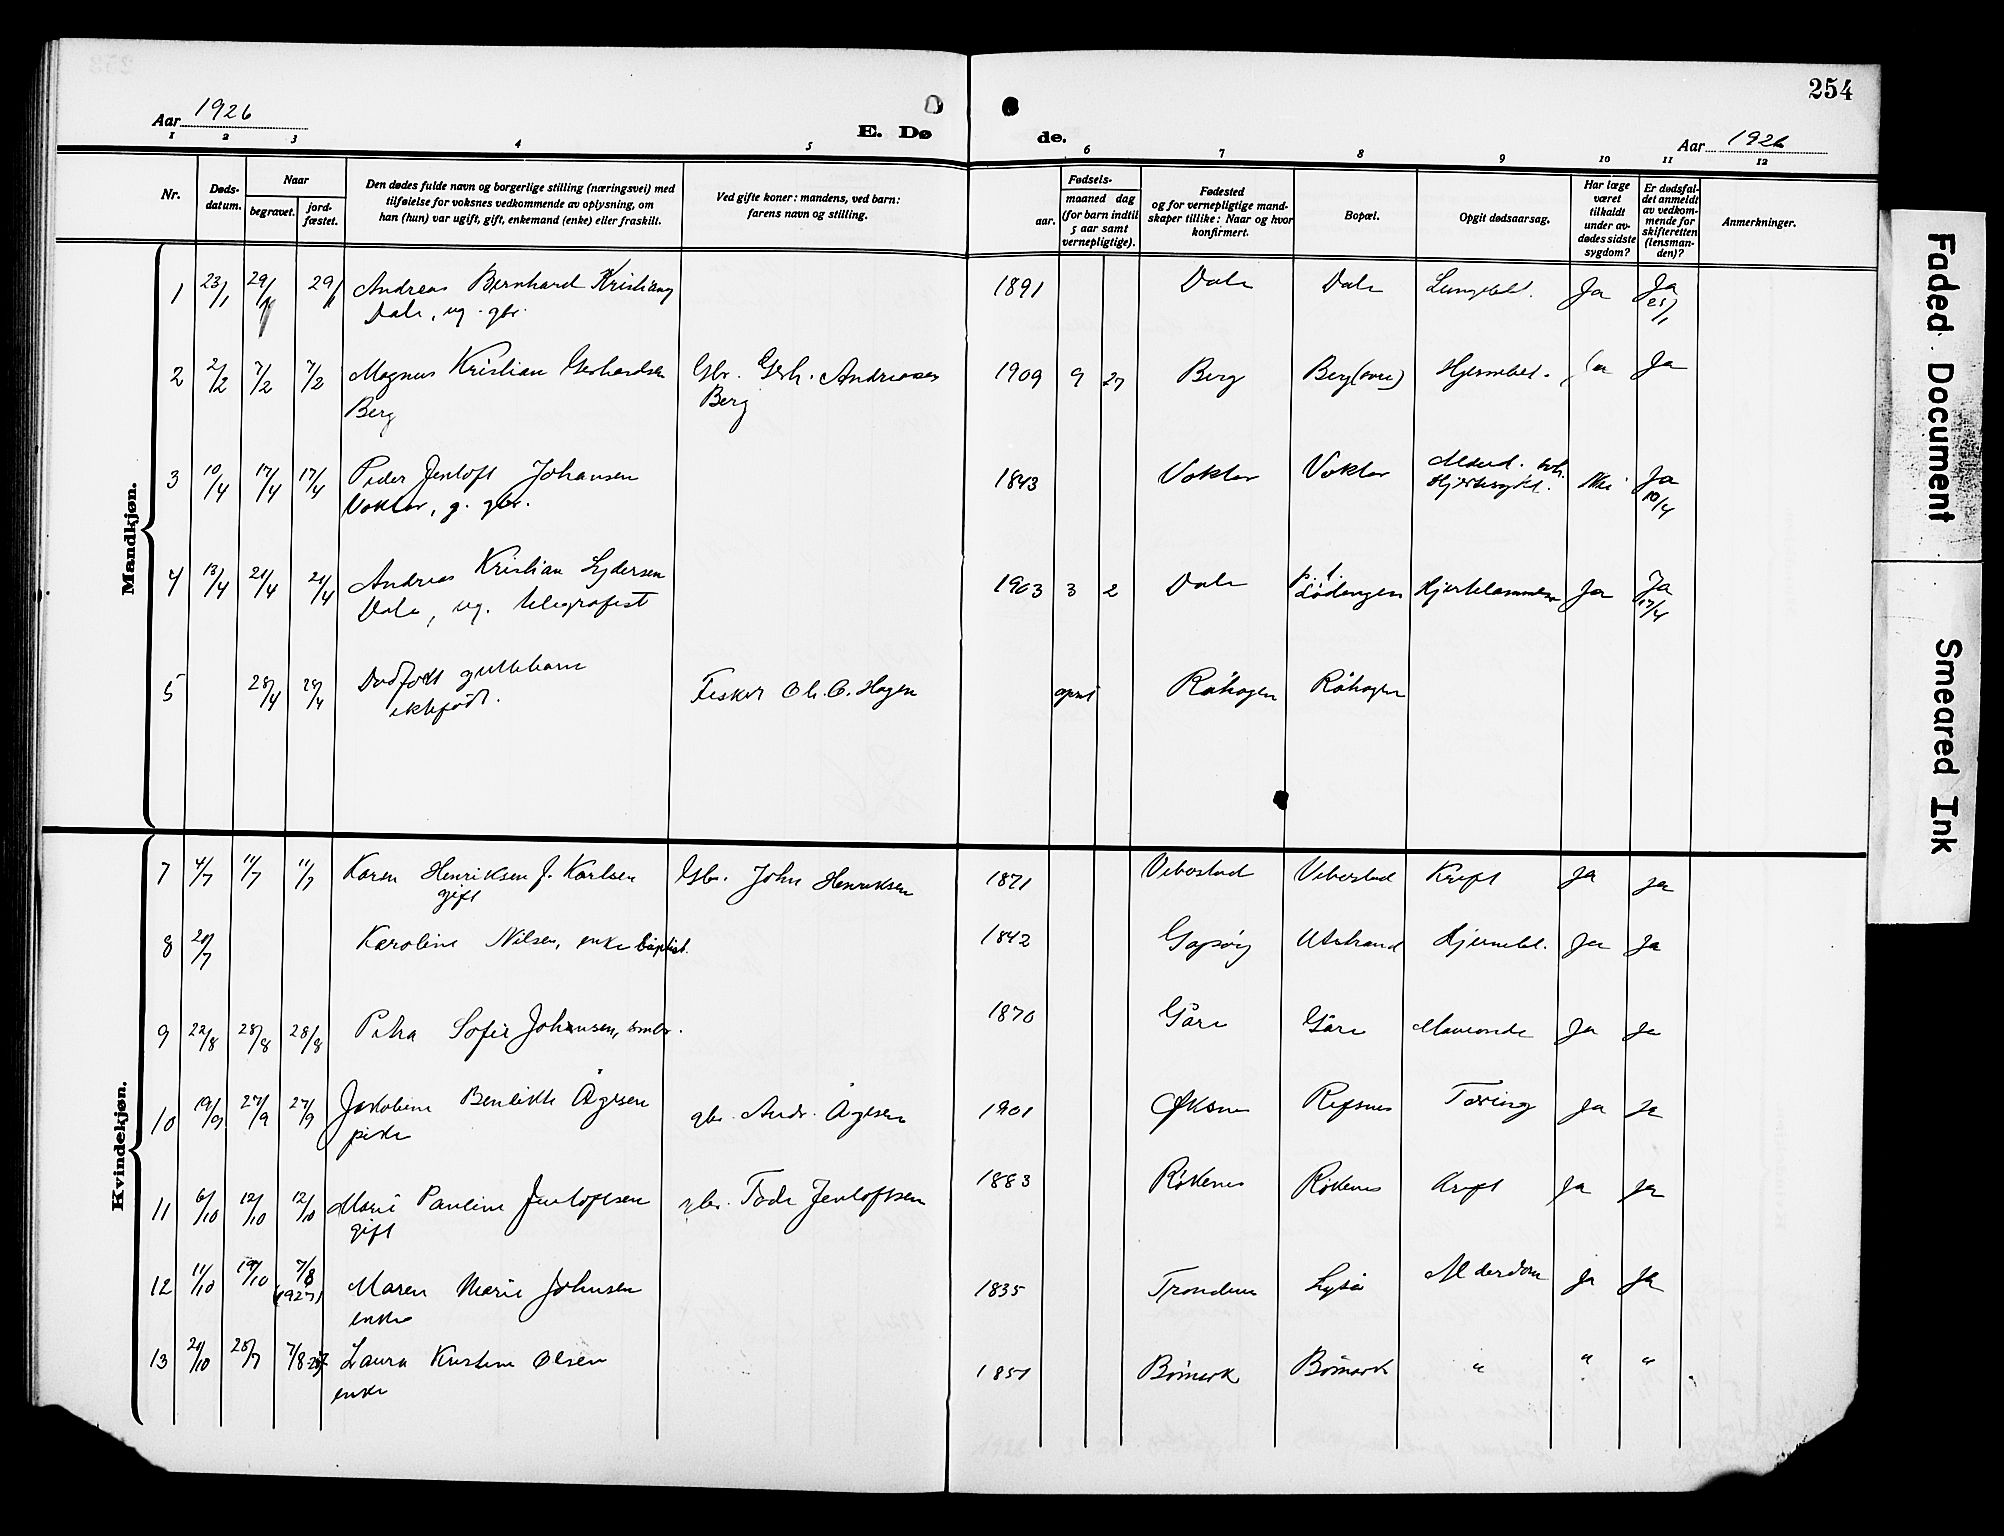 254
Aar 1926
E. Dø
de.
Aar 1926
1 2 3 4 5 6 7 8 9 10 11 12
Nr.
Døds-
datum.
Naar
begravet.
jord-
fæstet.
Den dødes fulde navn og borgerlige stilling (næringsvei) med
tilføielse for voksnes vedkommende av oplysning, om
han (hun) var ugift, gift, enkemand (enke) eller fraskilt.
Ved gifte koner: mandens, ved barn:
farens navn og stilling.
Fødsels-
aar.
maaned dag
(for barn indtil
5 aar samt
vernepligtige).
Fødested
og for vernepligtige mand-
skaper tillike: Naar og hvor
konfirmert.
Bopæl.
Opgit dødsaarsag.
Har læge
været
tilkaldt
under av-
dødes sidste
sygdom?
Er dødsfal-
det anmeldt
av vedkom-
mende for
skifteretten
(lensman-
den)?
Anmerkninger.
Mandkjøn.
1 23/1 29/1 29/1 Andreas Bernhard Kristiang 1891 Dale Dale Ja Ja
Dale, ug. gbr. 25/1
2 2/2 7/2 7/2 Magnus Kristian Gerhardsen Gbr. Gerh. Andreasen 1909 9 27 Berg Berg (øvre) Hjernebet. Ja Ja
Berg Berg
3 10/4 17/4 17/4 Peder Jentoft Johansen 1843 Voktor Voktor Ikke Ja
Voktor, g. gbr. Hjertesykd. 10/4
4 13/4 21/4 21/4 Andreas Kristian Lydersen 1903 3 2 Dale Lødengen Hjertelammelse Ja Ja
Dale, ug. telegrafist 17/4
5 28/4 28/4 Dødfødt guttebarn Fisker Ole C. Hagen april Råhagen Råhagen
ektefødt.
Kvindekjøn.
7 4/7 11/7 11/7 Karen Henriksen f. Karlsen Gbr. John Henriksen 1871 Vebostad Vebostad Kreft Ja ja
gift
8 20/7 Karoline Nilsen, enke baptist. 1842 Gapøy Utstrand Hjernebl. Ja Ja
9 22/8 28/8 28/8 Petra Sofie Johansen, 1870 Gåre Gåre Mavesonde Ja Ja
10 19/9 27/9 27/9 Jakobine Benedikte Ågesen gbr. Andr. Ågesen 1901 Øksnes Refsnes Tæring Ja Ja
pike
11 6/10 12/10 12/10 Marie Pauline Jentoftsen gbr. Tode Jentoftsen 1883 Røkenes Røkenes Kreft Ja Ja
gift
12 11/10 19/10 7/8 Maren Marie Johnsen 1835 Trondenes Lyså Alderdom ja Ja
(1927) enke
13 20/10 28/7 7/8-27 Laura Kristine Olsen 1851 Bømark Bømark " " "
enke
Faded Document
Smeared Ink